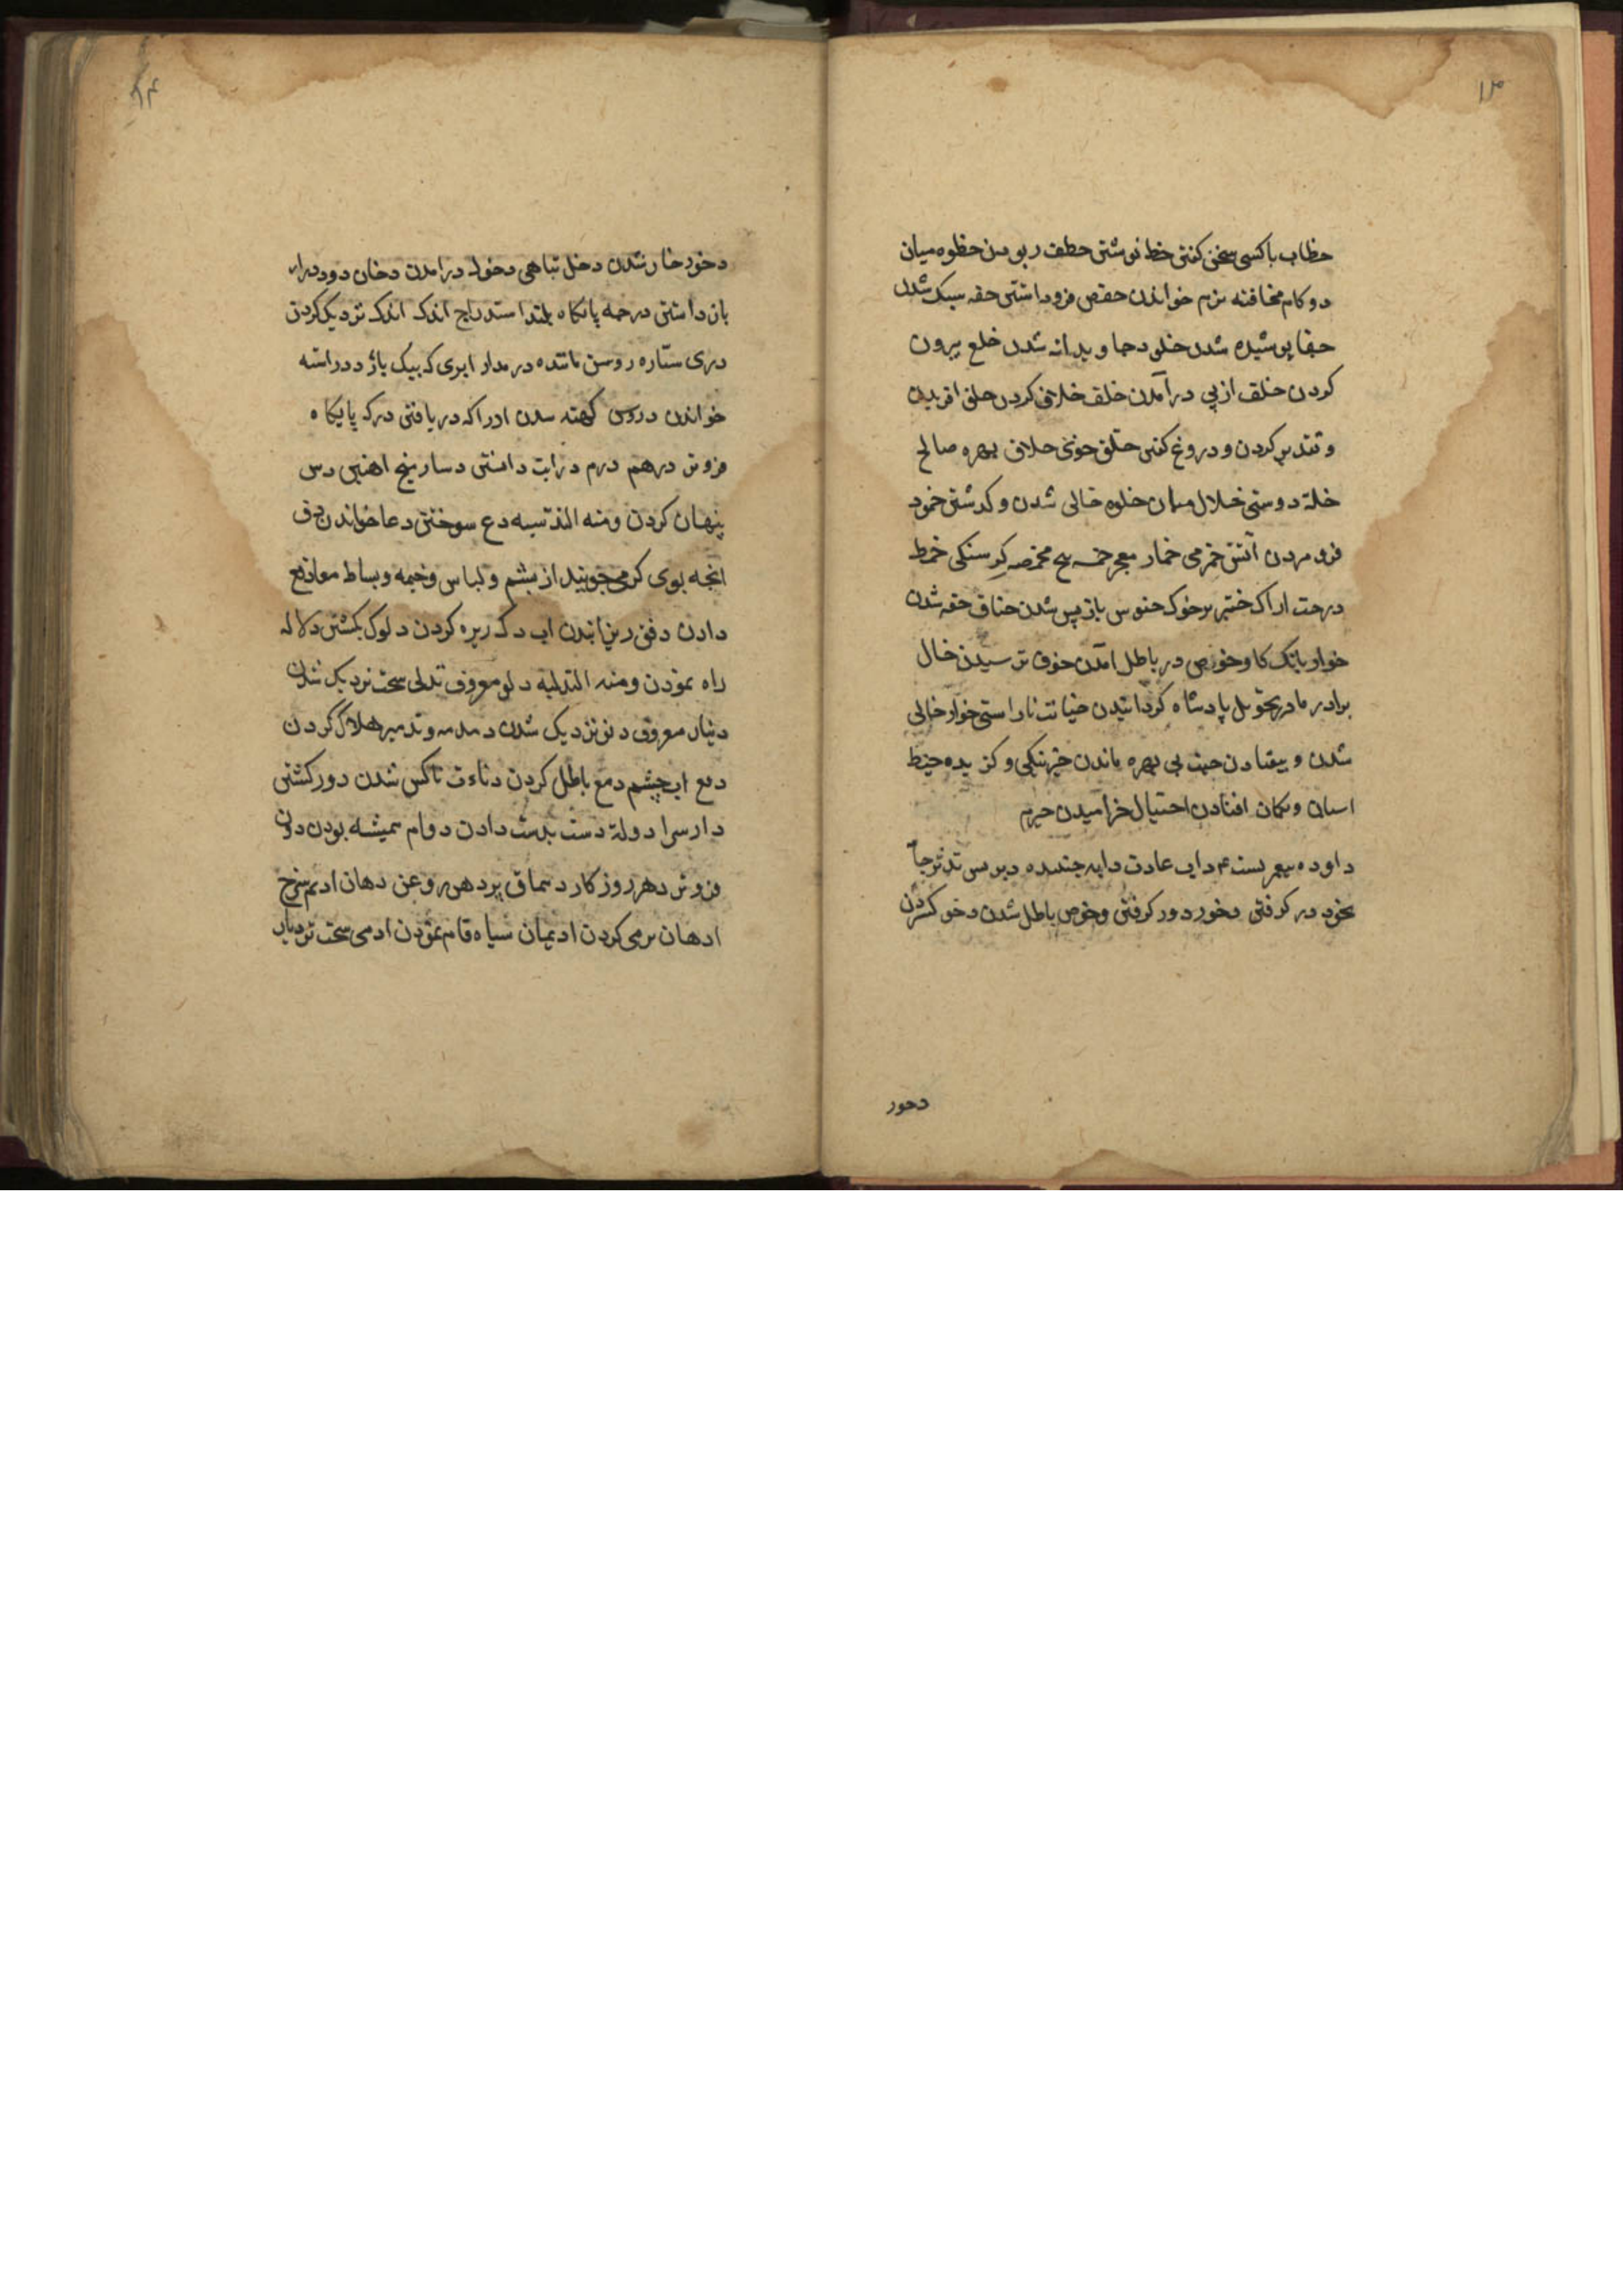 ۱۳
خطاب باکسی سخن کفتن خط نوشتن خطف ربودن خطوه میان
دو کام مخافته نرم خواندن خفض فروداشتن خفه سبک شدن
خفا پوشیده شدن خلود جاویدانه شدن خلع بیرون
کردن خلف از پی درآمدن خلف خلاف کردن خلق افریدن
و تقدیر کردن و دروغ کفتن خلق خوی خلاق بهره صالح
خلة دوستی خلال میان خلوه خالی شدن و کدشتن خمود
فرو مردن آتش خمر می خمار معجر خمسه پنج مخمصه کرسنکی خمط
درخت اراک خنزیر خوک خنوس بازپس شدن خناق خفه شدن
خوار بانک کاو خوض در باطل آمدن خوف ترسیدن خال
برادر مادر تخویل پادشاه کردانیدن خیانت ناراستی خوار خالی
شدن و بیفتادن خیبت بی بهره ماندن خیر نیکی و کزیده خیط
و کمان افتادن اختیال خرامیدن
داود داب عادت دابه جنبنده دبر پس تدثر جامه
بخود در کرفتن دخور دور کرفتن دحوض باطل شدن دحو کستردن
دحور
۱۴
دخور خوار شدن دخل تباهی دخول درامدن دخان دود درار
بازداشتن درجه پایکاه بلند استدراج اندک اندک نزدیک کردن
دری ستاره روشن تابنده درمدار ابری که بیک باز دراسه
خواندن دروس کهنه شدن ادراک دریافتن درک پایکاه
فروتر درهم درم درایت دانستن دسار میخ اهنین دس
پنهان کردن ومنه التدسیه دع سوختن دعا خواندن دف
انچه بوی کرمی جویند از پشم و لباس و خیمه و بساط مدافع
دادن دفق ریزانیدن اب دک ریزه کردن دلوک بکشتن دلاله
راه نمودن ومنه التدلیه دلو معروف تدلی سخت نزدیک شدن
دینار معروف دنو نزدیک شدن دمدمه و تدمیر هلاک کردن
دمع اب چشم دمغ باطل کردن دناءت ناکس شدن دور کشتن
دار سرا دولة دست بدست دادن دوام همیشه بودن دون
فروتر دهر روزکار دهاق پر دهن روغن دهان ادیم سرخ
ادهان نرمی کردن ادیمان سیاه فام نمودن ادمی سخت تر دیار